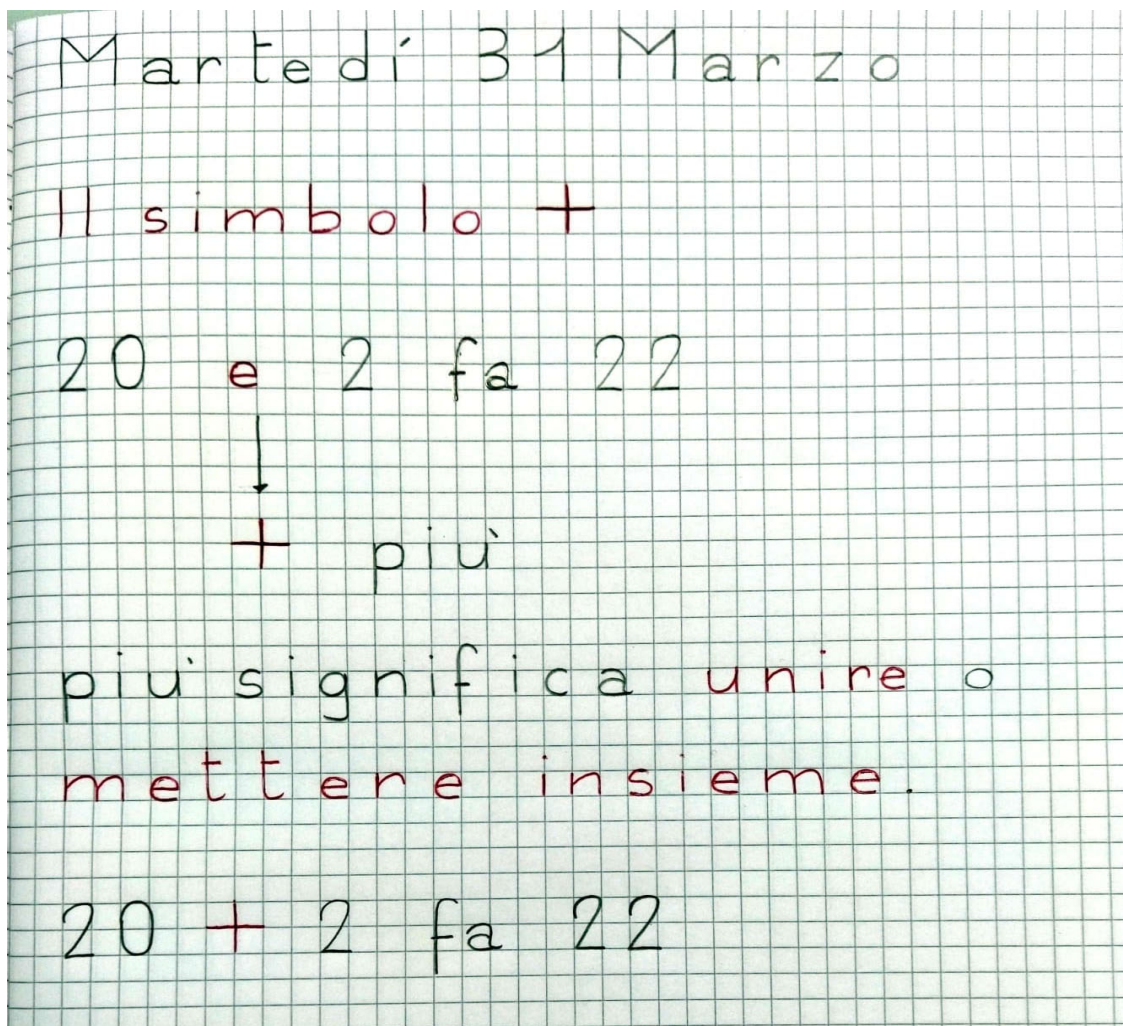 Martedí 31 Marzo
Il simbolo +
20 e 2 fa 22
+ più
più significa unire o
mettere insieme.
20 + 2 fa 22